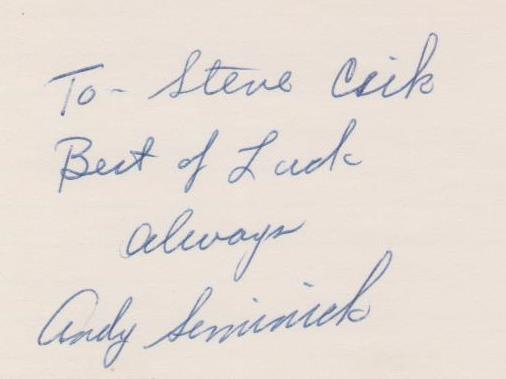 To- Steve Csik
Best of Luck
always
Andy Seminick